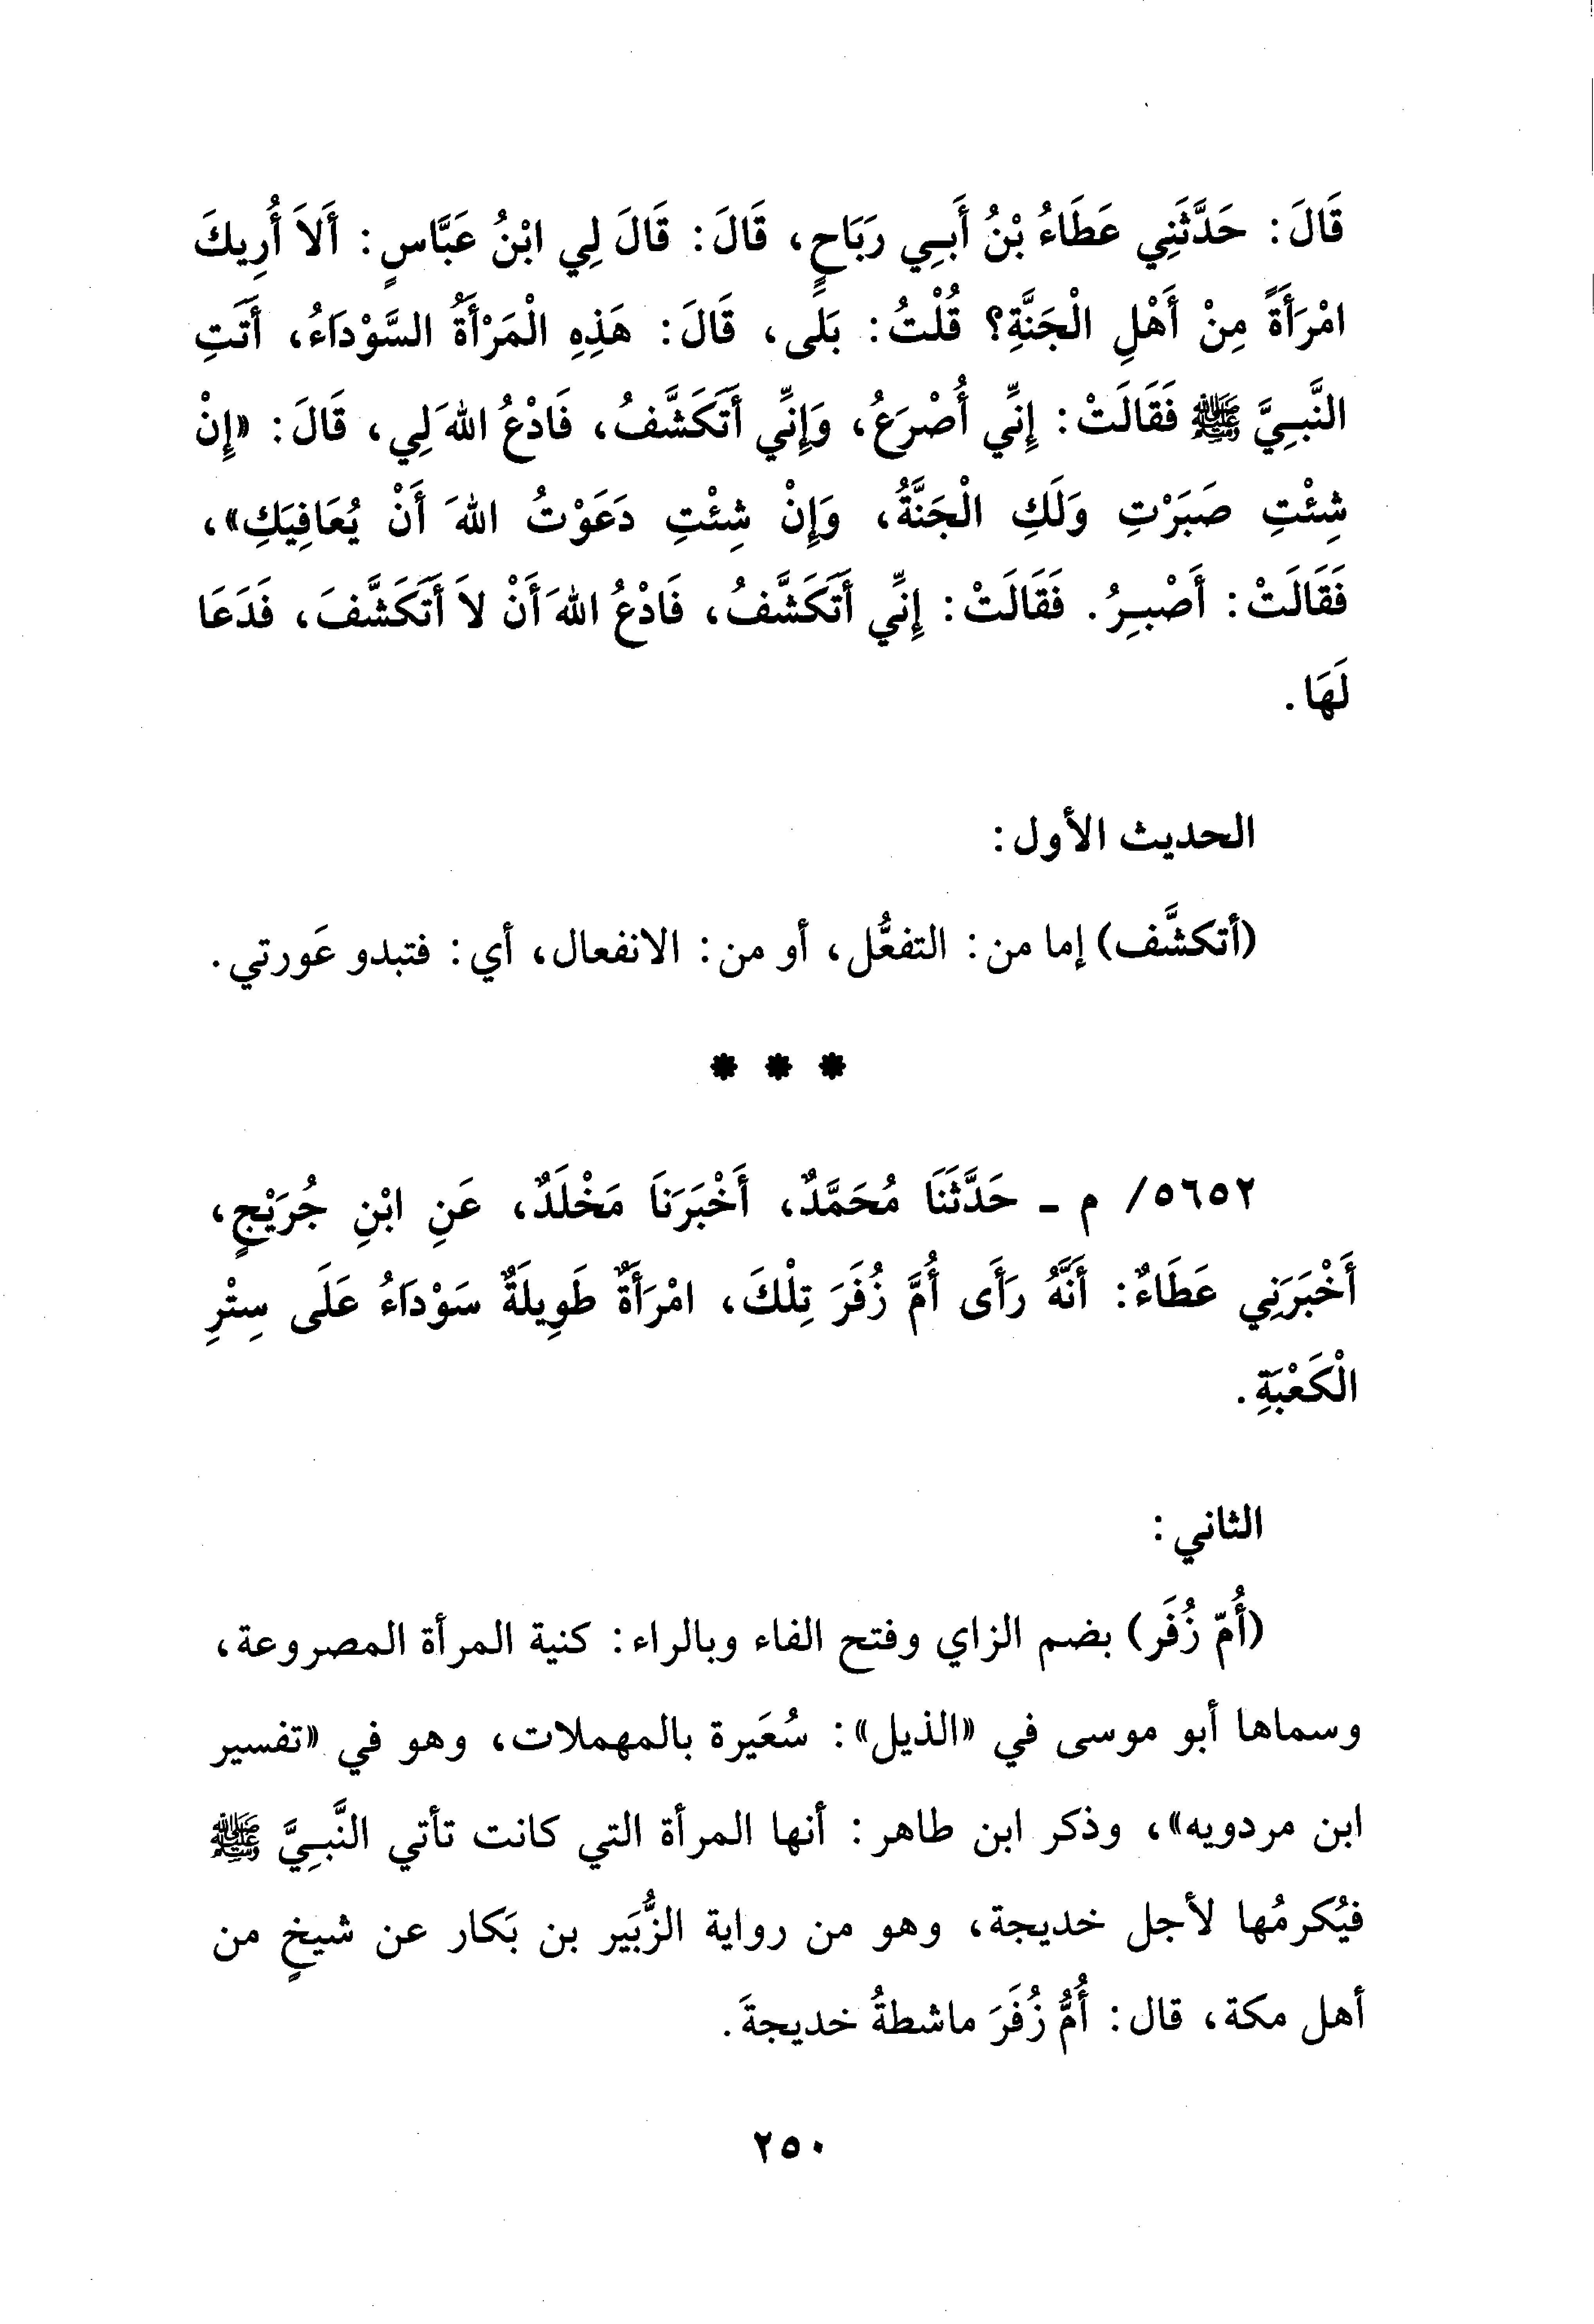 قَالَ: حَدَّثَنِي عَطَاءُ بْنُ أَبِي رَبَاحٍ، قَالَ: قَالَ لِي ابْنُ عَبَّاسٍ: أَلاَ أُرِيكَ
امْرَأَةً مِنْ أَهْلِ الْجَنَّةِ؟ قُلْتُ: بَلَى، قَالَ: هَذِهِ الْمَرْأَةُ السَّوْدَاءُ، أَتَتِ
النَّبِيَّ ﷺ فَقَالَتْ: إِنِّي أُصْرَعُ، وَإِنِّي أَتَكَشَّفُ، فَادْعُ اللهَ لِي، قَالَ: «إِنْ
شِئْتِ صَبَرْتِ وَلَكِ الْجَنَّةُ، وَإِنْ شِئْتِ دَعَوْتُ اللهَ أَنْ يُعَافِيَكِ»،
فَقَالَتْ: أَصْبِرُ. فَقَالَتْ: إِنِّي أَتَكَشَّفُ، فَادْعُ اللهَ أَنْ لاَ أَتَكَشَّفَ، فَدَعَا
لَهَا.
الحديث الأول:
(أتكشَّف) إما من: التفعُّل، أو من: الانفعال، أي: فتبدو عَورتي.
* * *
٥٦٥٢/ م - حَدَّثَنَا مُحَمَّدٌ، أَخْبَرَنَا مَخْلَدٌ، عَنِ ابْنِ جُرَيْجٍ،
أَخْبَرَنِي عَطَاءٌ: أَنَّهُ رَأَى أُمَّ زُفَرَ تِلْكَ، امْرَأَةٌ طَوِيلَةٌ سَوْدَاءُ عَلَى سِتْرِ
الْكَعْبَةِ.
الثاني:
(أُمّ زُفَر) بضم الزاي وفتح الفاء وبالراء: كنية المرأة المصروعة،
وسماها أبو موسى في «الذيل»: سُعَيرة بالمهملات، وهو في «تفسير
ابن مردويه»، وذكر ابن طاهر: أنها المرأة التي كانت تأتي النَّبِيَّ ﷺ
فيُكرمُها لأجل خديجة، وهو من رواية الزُّبَير بن بَكار عن شيخٍ من
أهل مكة، قال: أُمُّ زُفَرَ ماشطةُ خديجةَ.
٢٥٠